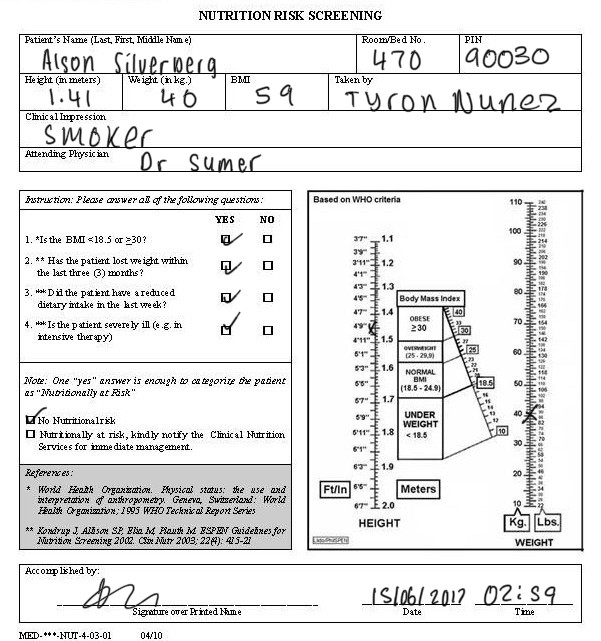 NUTRITION RISK SCREENING
Patient's Name (Last, First, Middle Name) Room/Bed No. PIN
Alson Silverberg 470 90030
Height (in meters) Weight (in kg.) BMI Taken by
1.41 40 59 Tyron Nunez
Clinical Impression
Smoker
Attending Physician
Dr Sumer
Instruction: Please answer all of the following questions:
YES NO
1. *Is the BMI <18.5 or ≥30?
2. ** Has the patient lost weight within
the last three (3) months?
3. **Did the patient have a reduced
dietary intake in the last week?
4. **Is the patient severely ill (e.g. in
intensive therapy)
Note: One "yes" answer is enough to categorize the patient
as "Nutritionally at Risk"
No Nutritional risk
Nutritionally at risk, kindly notify the Clinical Nutrition
Services for immediate management.
References:
* World Health Organization. Physical status: the use and
interpretation of anthropometry. Geneva, Switzerland: World
Health Organization; 1995 WHO Technical Report Series
** Kondrup J, Allison SP, Elia M, Plauth M. ESPEN Guidelines for
Nutrition Screening 2002. Clin Nutr 2003; 22(4): 415-21
Based on WHO criteria
3'7" 1.1
3'9"
3'11" 1.2
4'1"
4'3" 1.3
4'5"
4'7" 1.4
4'9"
4'11" 1.5
5'1"
5'3" 1.6
5'5"
5'7" 1.7
5'9"
5'11" 1.8
6'1"
6'3" 1.9
6'5"
6'7" 2.0
Ft/In Meters
HEIGHT
Body Mass Index
OBESE
≥30
OVERWEIGHT
(25 - 29,9)
NORMAL
BMI
(18.5 - 24.9)
UNDER
WEIGHT
< 18.5
40
30
25
18.5
10
110
100
90
80
70
60
50
40
30
20
10
Kg. Lbs.
WEIGHT
Accomplished by:
15/06/2017 02:59
Signature over Printed Name Date Time
MED-***-NUT-4-03-01 04/10